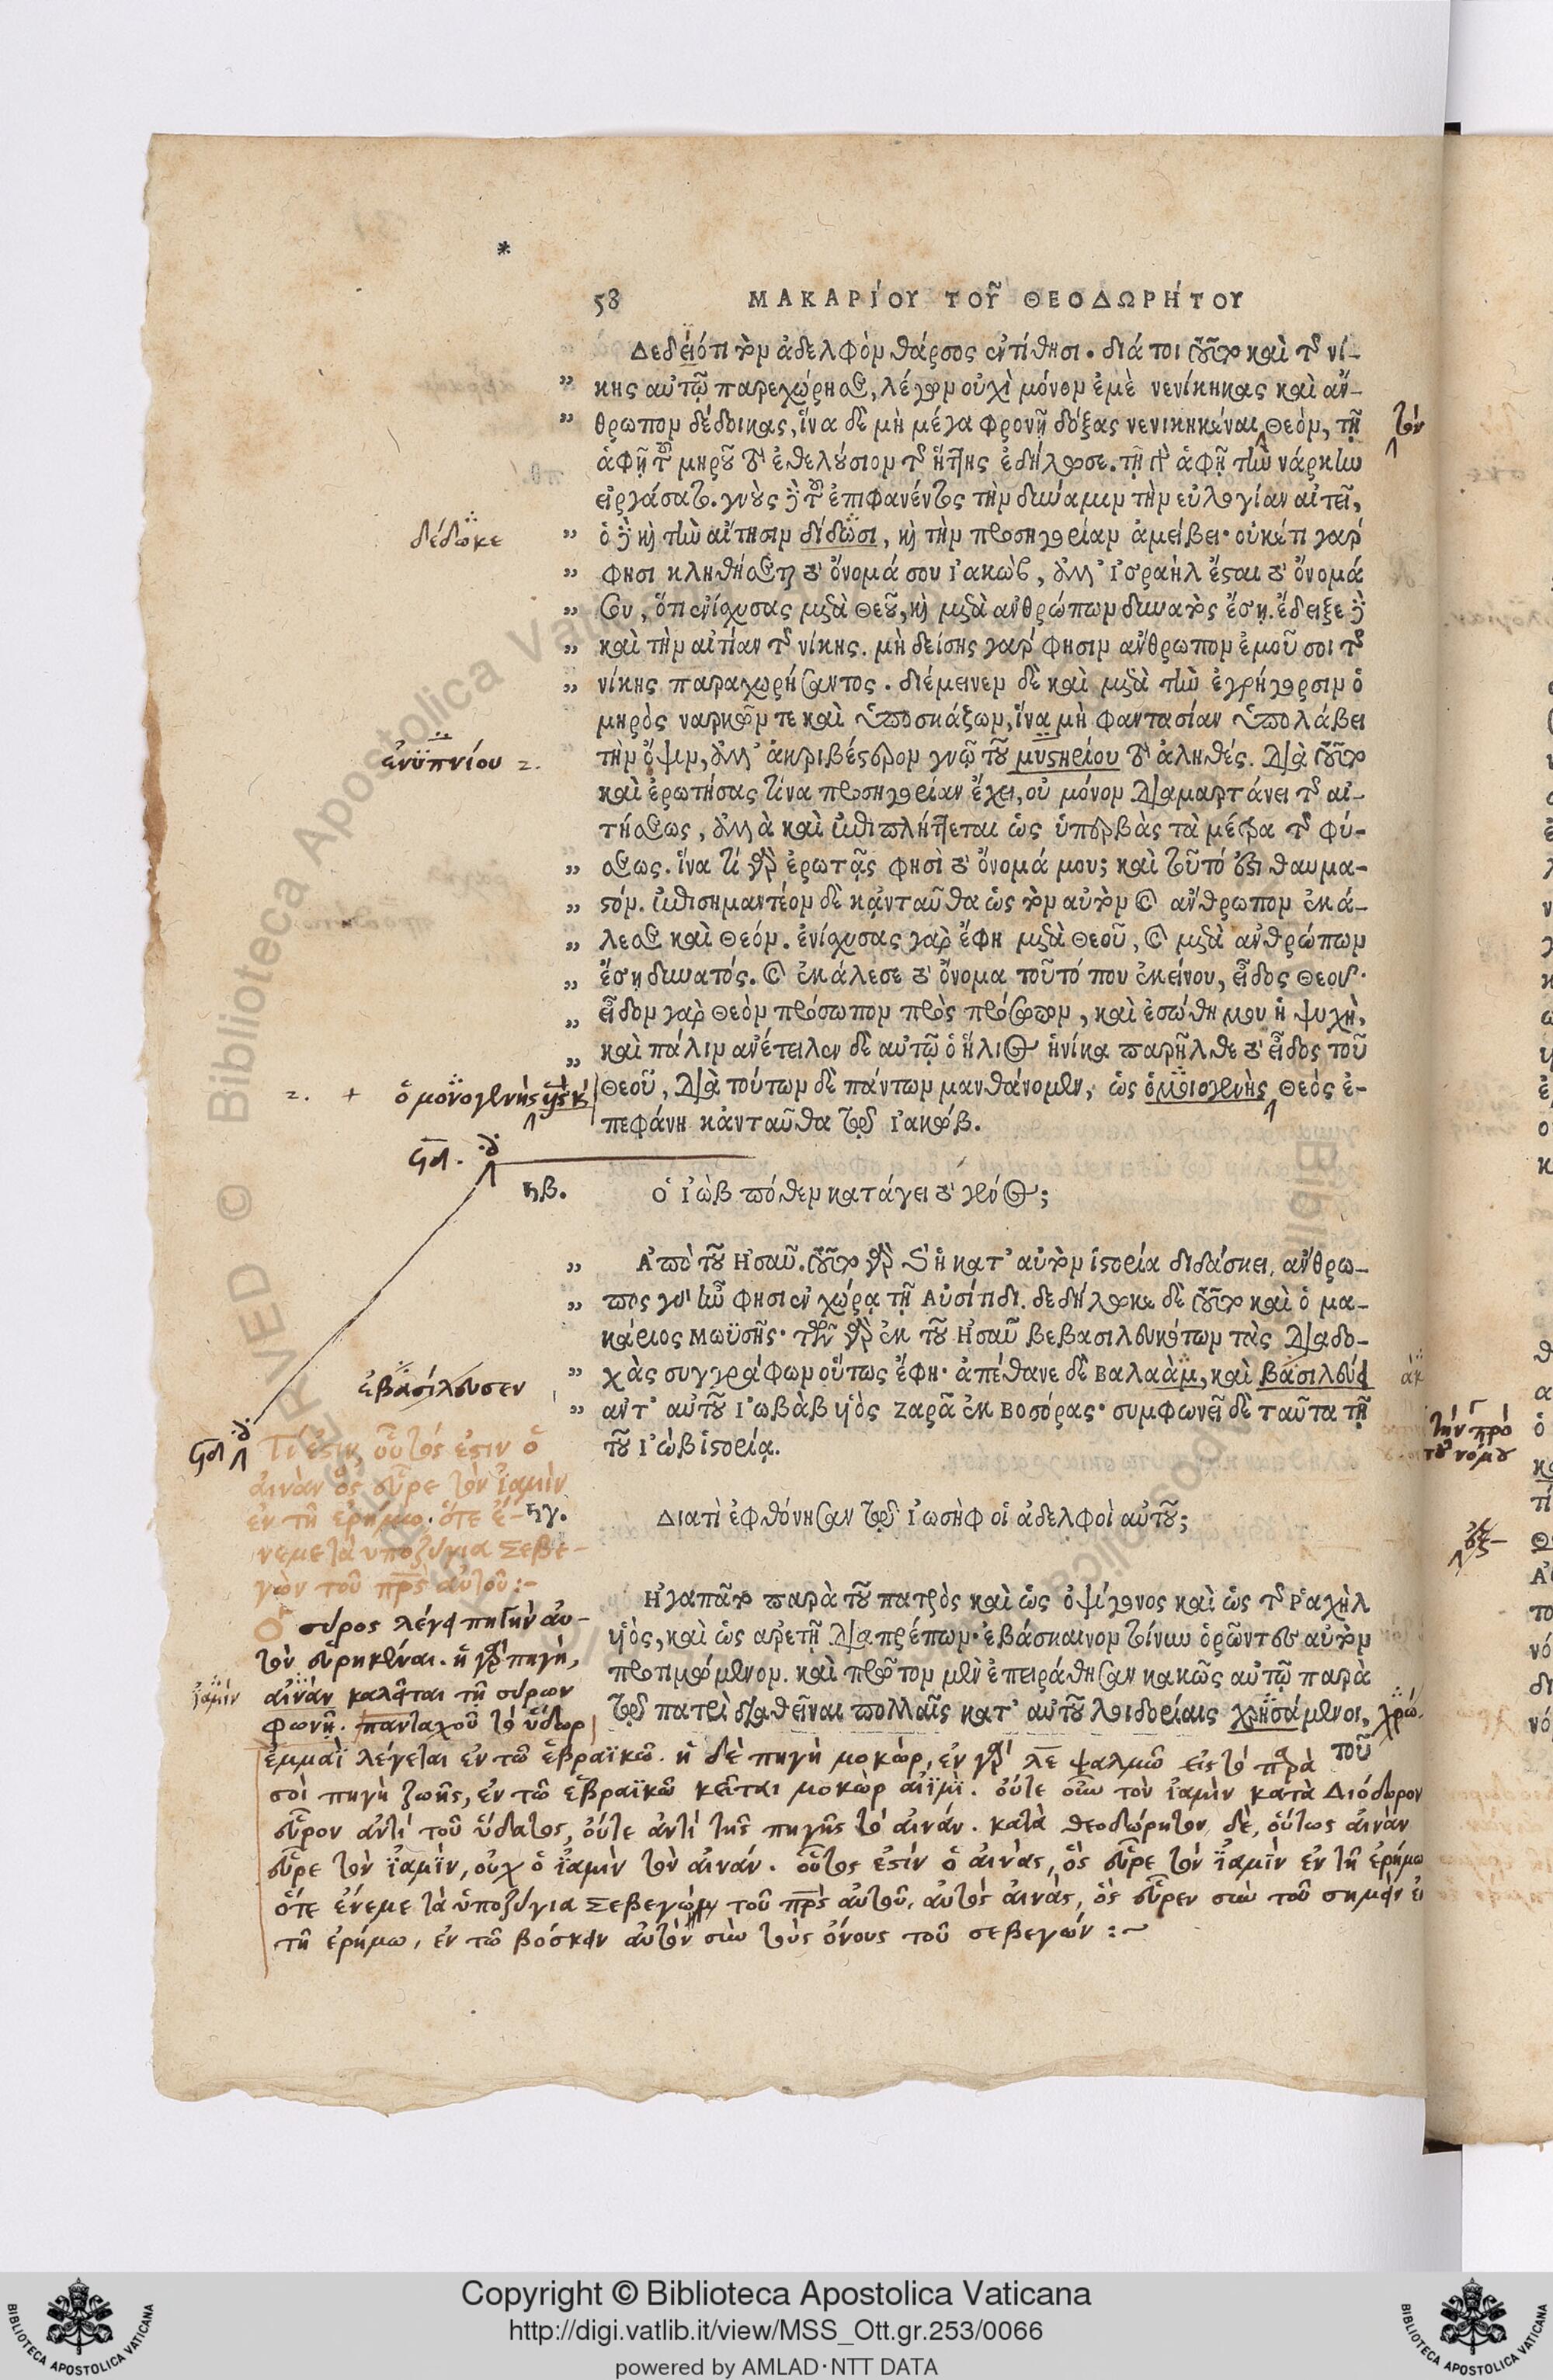 *
58 ΜΑΚΑΡίΟΥ ΤΟΥ͂ ΘΕΟΔΩΡΉΤΟΥ
Δεδειότι τὸν ἀδελφὸν θάρσος ἐντίθησι. διά τοι τοῦτο καὶ τῆς νί-
κης αὐτῷ παρεχώρησε, λέγων οὐχὶ μόνον ἐμὲ νενίκηκας καὶ ἄν-
θρωπον δέδοικας, ἵνα δὲ μὴ μέγα φρονῇ δόξας νενικηκέναι Θεὸν, τῇ
τόν
ἁφῇ τοῦ μηροῦ τὸ ἐθελούσιον τῆς ἥττης ἐδήλωσε. τῇ γὰρ ἁφῇ τὴν νάρκην
εἰργάσατο. γνοὺς δὲ τοῦ ἐπιφανέντος τὴν δύναμιν τὴν εὐλογίαν αἰτεῖ,
δέδωκε
ὁ δὲ καὶ τὴν αἴτησιν δίδωσι, καὶ τὴν προσηγορίαν ἀμείβει· οὐκέτι γάρ
φησι κληθήσεται τὸ ὄνομά σου Ἰακὼβ, ἀλλ' Ἰσραὴλ ἔσται τὸ ὄνομά
σου, ὅτι ἐνίσχυσας μετὰ Θεοῦ, καὶ μετὰ ἀνθρώπων δυνατὸς ἔσῃ. ἔδειξε δὲ
καὶ τὴν αἰτίαν τῆς νίκης. μὴ δείσῃς γάρ φησιν ἄνθρωπον ἐμοῦ σοι τῆς
νίκης παραχωρήσαντος. διέμεινεν δὲ καὶ μετὰ τὴν ἐγρήγορσιν ὁ
μηρὸς ναρκῶν τε καὶ ὑποσκάζων, ἵνα μὴ φαντασίαν ὑπολάβει
ἐνϋπνίου
τὴν ὄψιν, ἀλλ' ἀκριβέστερον γνῷ τοῦ μυστηρίου τὸ ἀληθές. διὰ τοῦτο
καὶ ἐρωτήσας τίνα προσηγορίαν ἔχει, οὐ μόνον διαμαρτάνει τῆς αἰ-
τήσεως, ἀλλὰ καὶ ἐπιπλήττεται ὡς ὑπερβὰς τὰ μέτρα τῆς φύ-
σεως. ἵνα τί γὰρ ἐρωτᾷς φησὶ τὸ ὄνομά μου; καὶ τοῦτό ἐστι θαυμα-
στόν. ἐπισημαντέον δὲ κᾀνταῦθα ὡς τὸν αὐτὸν καὶ ἄνθρωπον ἐκά-
λεσε καὶ Θεόν. ἐνίσχυσας γὰρ ἔφη μετὰ Θεοῦ, καὶ μετὰ ἀνθρώπων
ἔσῃ δυνατός. καὶ ἐκάλεσε τὸ ὄνομα τοῦ τόπου ἐκείνου, εἶδος Θεοῦ·
εἶδον γὰρ Θεὸν πρόσωπον πρὸς πρόσωπον, καὶ ἐσώθη μου ἡ ψυχὴ,
καὶ πάλιν ἀνέτειλεν δὲ αὐτῷ ὁ ἥλιος ἡνίκα παρῆλθε τὸ εἶδος τοῦ
ὁ μονογενὴς
Θεοῦ, διὰ τούτων δὲ πάντων μανθάνομεν, ὡς ὁ μονογενὴς Θεὸς ἐ-
πεφάνη κἀνταῦθα τῷ Ἰακώβ.
ϟβ. Ὁ Ἰὼβ πόθεν κατάγει τὸ γένος;
Ἀπὸ τοῦ Ἠσαῦ. τοῦτο γὰρ καὶ ἡ κατ' αὐτὸν ἱστορία διδάσκει, ἄνθρω-
πος γάρ ἦν φησιν ἐν χώρᾳ τῇ Αὐσίτιδι. δεδήλωκε δὲ τοῦτο καὶ ὁ μα-
κάριος Μωϋσῆς· τῶν γὰρ ἐκ τοῦ Ἠσαῦ βεβασιλευκότων τὰς διαδο-
ἐβασίλευσεν
χὰς συγγράφων οὕτως ἔφη· ἀπέθανε δὲ Βαλαὰμ, καὶ βασιλεύει
ἀντ' αὐτοῦ Ἰωβὰβ υἱὸς Ζαρᾶ ἐκ Βοσόρας· συμφωνεῖ δὲ ταῦτα τῇ
τοῦ Ἰὼβ ἱστορίᾳ.
Τί ἐστιν, οὗτός ἐστιν ὁ
αἰνὰν ὃς εὗρε τὸν ἰαμὶν
ἐν τῇ ἐρήμῳ. ὅτε ἔ-
νεμε τὰ υποζύγια Σεβε-
γὼν τοῦ πρς αὐτοῦ:-
ϟγ. Διατὶ ἐφθόνησαν τῷ Ἰωσὴφ οἱ ἀδελφοὶ αὐτοῦ;
Ἠγαπᾶτο παρὰ τοῦ πατρὸς καὶ ὡς ὀψίγονος καὶ ὡς τῆς Ῥαχὴλ
υἱὸς, καὶ ὡς ἀρετῇ διαπρέπων· ἐβάσκαινον τοίνυν ὁρῶντες αὐτὸν
προτιμώμενον. καὶ πρῶτον μὲν ἐπειράθησαν κακῶς αὐτῷ παρὰ
τῷ πατρὶ διαθεῖναι πολλαῖς κατ' αὐτοῦ λοιδορίαις χρησάμενοι,
τοῦ
Ὁ σύρος λέγει πηγὴν αὐ-
τὸν εὑρηκέναι. ἡ γὰρ πηγὴ,
ἰαμὶν
αἰνὰν καλεῖται τῇ σύρων
φωνῇ. πανταχοῦ τὸ ὕδωρ
ἐμμαῒ λέγεται ἐν τῶ ἑβραϊκῶ. ἡ δὲ πηγὴ μοκὼρ, ἐν γὰρ λε ψαλμῶ εἰς τὸ παρὰ
σοὶ πηγὴ ζωῆς, ἐν τῶ ἑβραϊκῶ κεῖται μοκὼρ αἰϊμϊ. οὔτε οὖν τὸν ἰαμὶν κατὰ Διόδωρον
εὗρον ἀντὶ τοῦ ὕδατος, οὔτε ἀντὶ τῆς πηγῆς τὸ αἰνάν. κατὰ θεοδώρητον δὲ, οὕτως αἰνὰν
εὗρε τὸν ἰαμὶν, οὐχ ὁ ἰαμὶν τὸν αἰνάν. οὗτος ἐστίν ὁ αἰνὰς, ὃς εὗρε τὸν ἰαμὶν ἐν τῇ ἐρήμω
ὅτε ἔνεμε τὰ ὑποζύγια Σεβεγὼν τοῦ πρς αὐτοῦ, αὐτὸς αἰνὰς, ὃς εὗρεν
τῇ ἐρήμω, ἐν τῶ βόσκειν αὐτὸν σὺν τοὺς ὄνους τοῦ σεβεγών :~
τὴν πρὸ
τοῦ νόμου
© Biblioteca Apostolica Vaticana
Copyright © Biblioteca Apostolica Vaticana
http://digi.vatlib.it/view/MSS_Ott.gr.253/0066
powered by AMLAD·NTT DATA
BIBLIOTECA APOSTOLICA VATICANA
BIBLIOTECA APOSTOLICA VATICANA